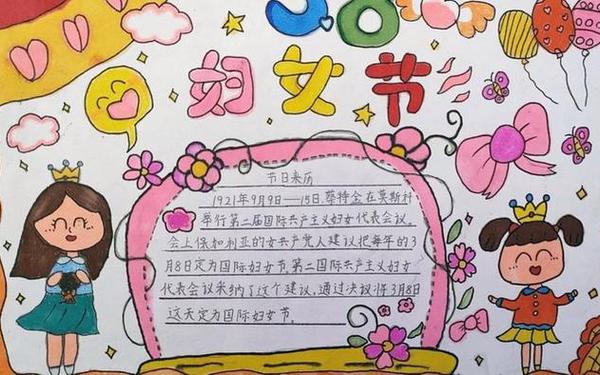 38
妇女节
节日来历
1921年9月9日—15日,蔡特金在莫斯科
举行第二届国际共产主义妇女代表会议。
会上保加利亚的女共产党人建议把每年的3
月8日定为国际妇女节。第二国际共产主义妇女
代表会议采纳了这个建议,通过决议将3月8日
这天定为国际妇女节。